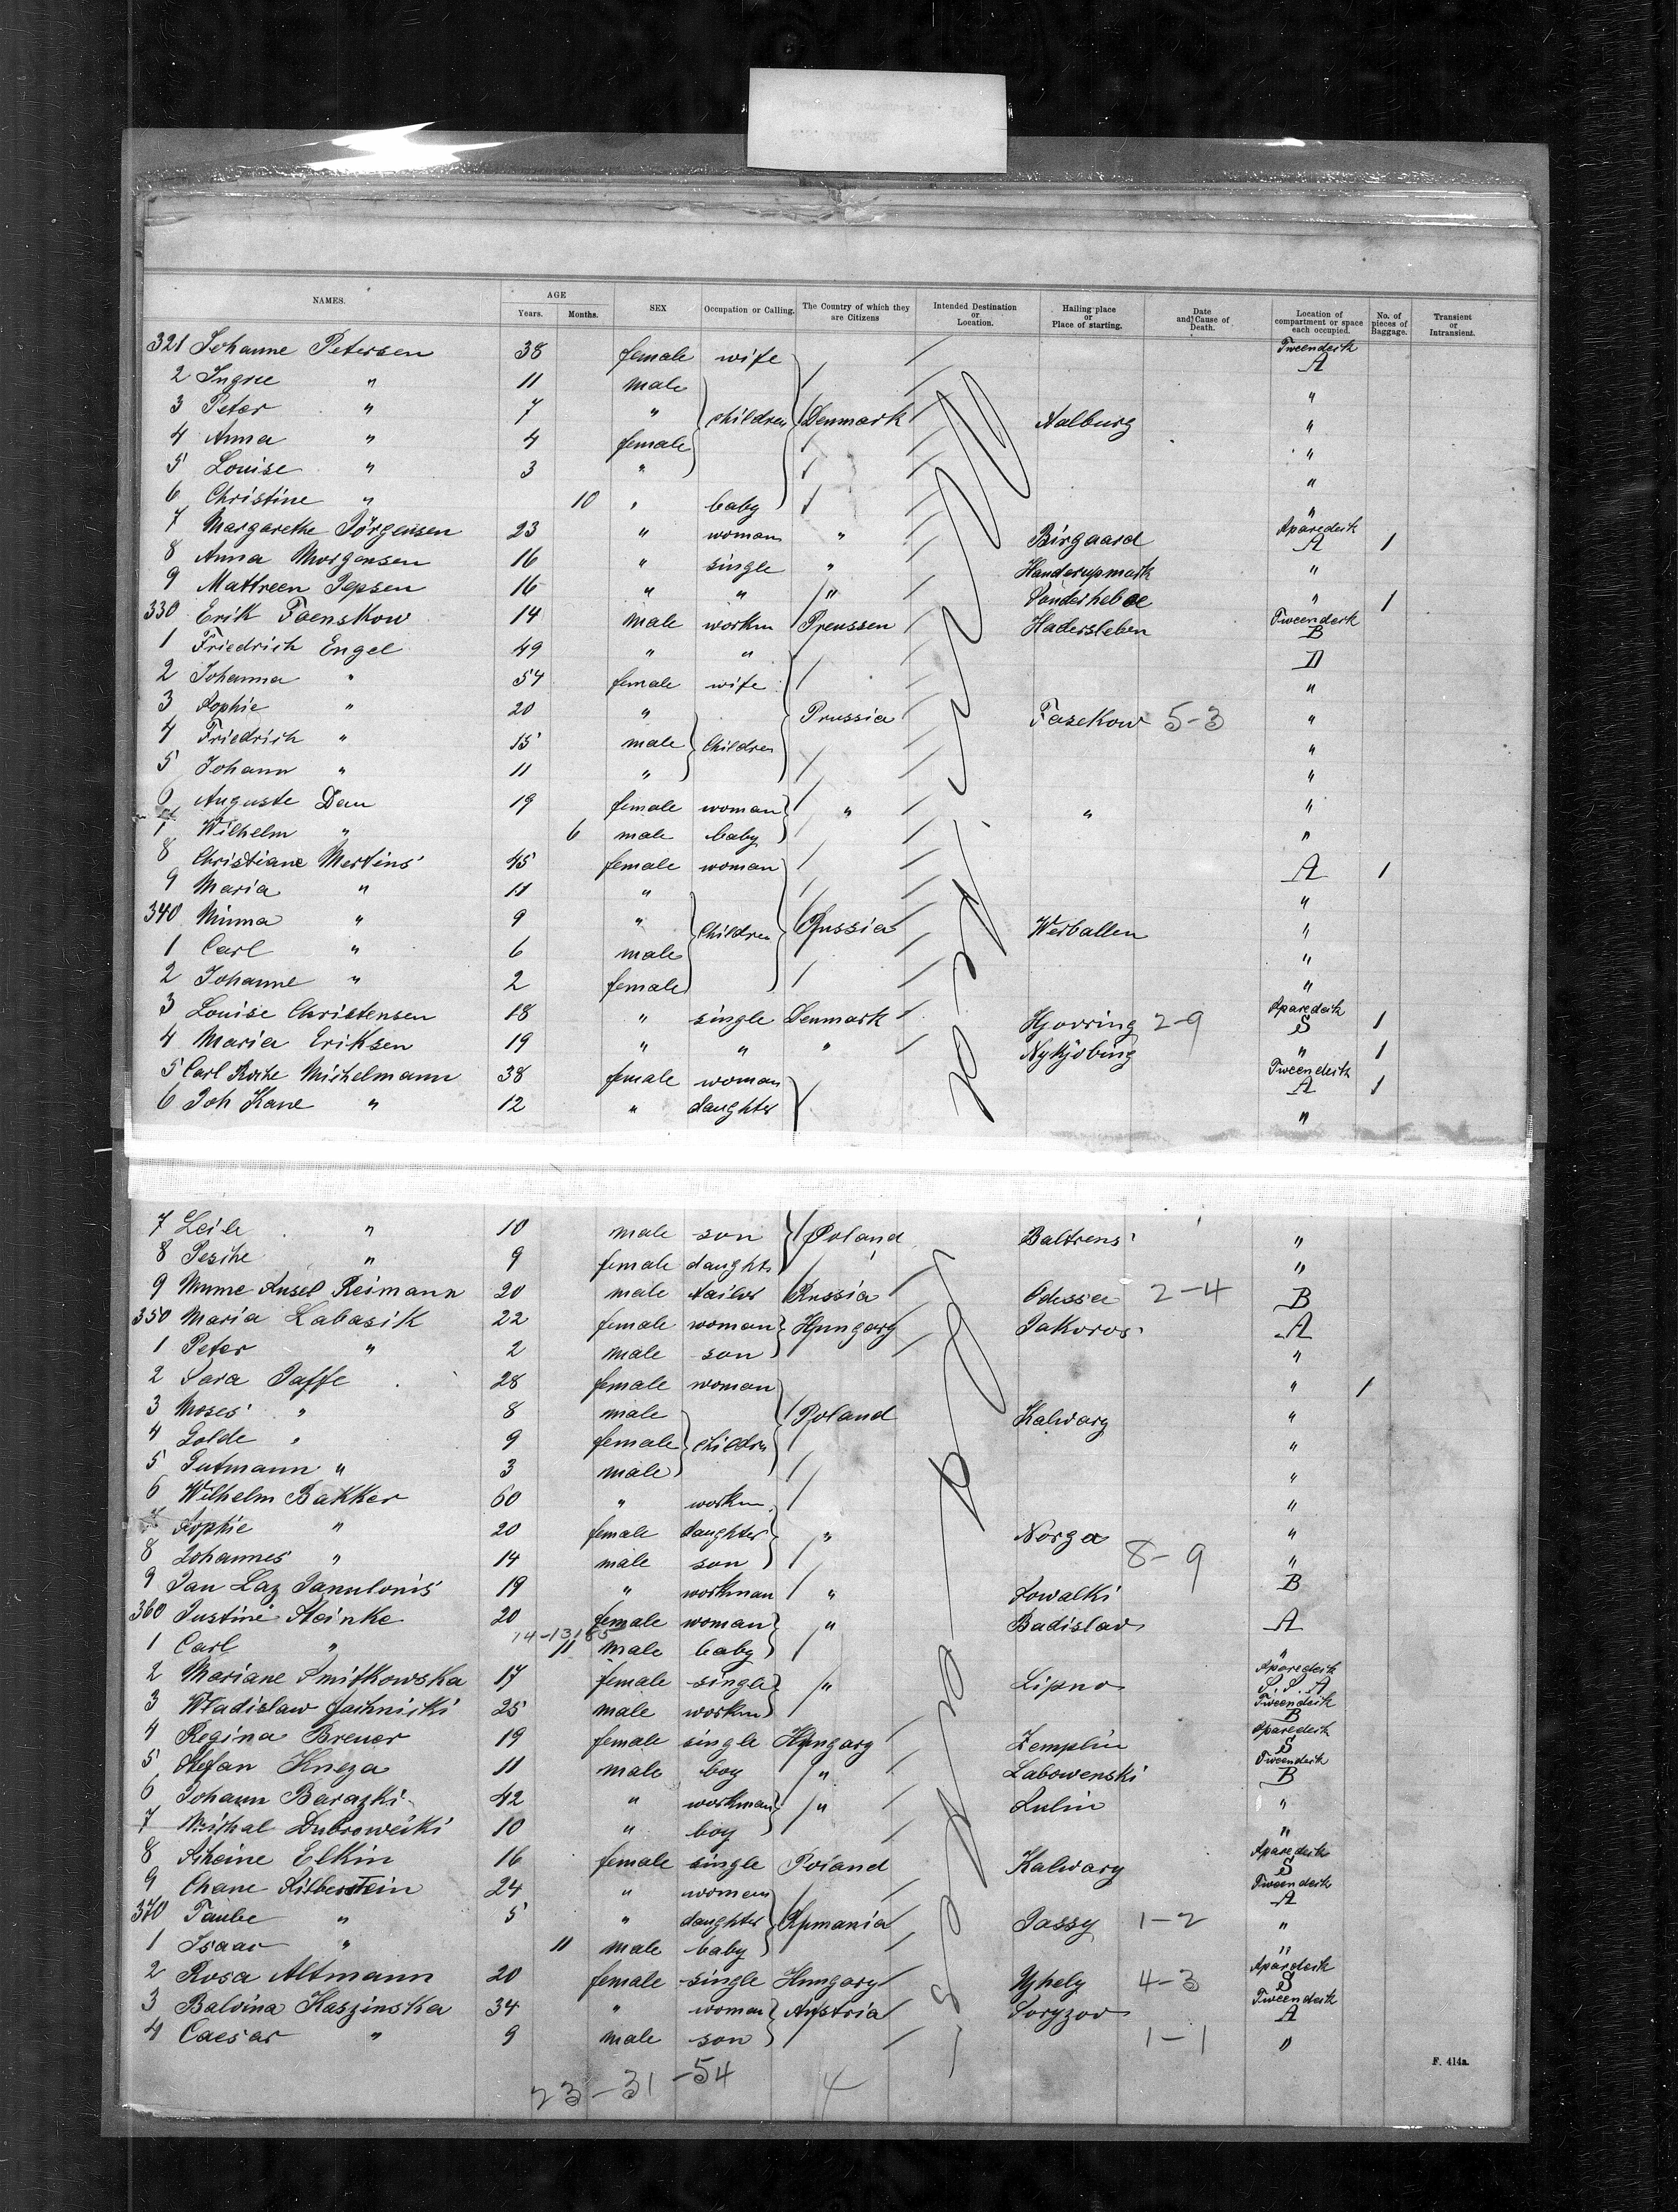 NAMES. AGE Years. Months. SEX Occupation or Calling. The Country of which they are Citizens Intended Destination or Location. Hailing place or Place of starting. Date and Cause of Death. Location of compartment or space each occupied. No. of pieces of Baggage. Transient or Intransient.
321 Johanne Petersen 38 female wife Tweendeck A
2 Ingre " 11 male "
3 Peter " 7 " children Denmark Aalburg "
4 Anna " 4 female "
5 Louise " 3 " "
6 Christine " 10 " baby "
7 Margarethe Jörgensen 23 " woman " Birgaard Sparedeck A 1
8 Anna Morgensen 16 " single " Handerupmark "
9 Mattreen Jepsen 16 " " " " 1
330 Erik Faenskow 14 male workm Preussen Hadersleben Tweendeck B
1 Friedrich Engel 49 " " D
2 Johanna " 54 female wife "
3 Sophie " 20 " Prussia Fazekow 5-3 "
4 Friedrich " 15 male Children "
5 Johann " 11 " "
6 Auguste Dau 19 female woman " " "
7 Wilhelm " 6 male baby "
8 Christiane Mertins 45 female woman A 1
9 Maria " 11 " "
340 Minna " 9 " Children Russia Weiballen "
1 Carl " 6 male "
2 Johanne " 2 female "
3 Louise Christensen 18 " single Denmark Hjorring 2-9 Sparedeck S 1
4 Maria Eriksen 19 " " " Nykjobing " 1
5 Carl Roche Michelmann 38 female woman Tweendeck A 1
6 Joh Kane " 12 " daughter "
7 Leib " 10 male son Poland Baltrens "
8 Pesche " 9 female daughts "
9 Mume Ansel Reimann 20 male tailor Russia Odessa 2-4 B
350 Maria Labasik 22 female woman Hungary Jakoros A
1 Peter " 2 male son "
2 Sara Jaffe 28 female woman " 1
3 Moses " 8 male Poland Kalwary "
4 Golde " 9 female childrn "
5 Gutmann " 3 male "
6 Wilhelm Bakker 60 " workm "
7 Sophie " 20 female daughter " Norga "
8 Johannes " 14 male son 8-9 "
9 Jan Laz Janulonis 19 " workman " Sowalki B
360 Justine Steinke 20 female woman " Badislav A
14-13185
1 Carl " 11 male baby "
2 Mariane Smitkowska 17 female single " Lipno Sparedeck S.S.A
3 Wladislaw Jachnicki 25 male workm Tweendeck B
4 Regina Breuer 19 female single Hungary Zemplin Sparedeck S
5 Stefan Hneza 11 male boy " Labowenski Tweendeck B
6 Johann Barazki 42 " workman " Lulin "
7 Michal Dubroweiki 10 " boy "
8 Scheine Elkin 16 female single Poland Kalwary Sparedeck S
9 Chane Silberstein 24 " woman Tweendeck A
370 Taube " 5 " daughter Rumania Jassy 1-2 "
1 Isaac " 11 male baby "
2 Rosa Altmann 20 female single Hungary Ujhely 4-3 Sparedeck S
3 Balvina Kaszinska 34 " woman Austria Soryzov Tweendeck A
4 Caesar " 9 male son 1-1 "
23-31-54 4
F. 414a.